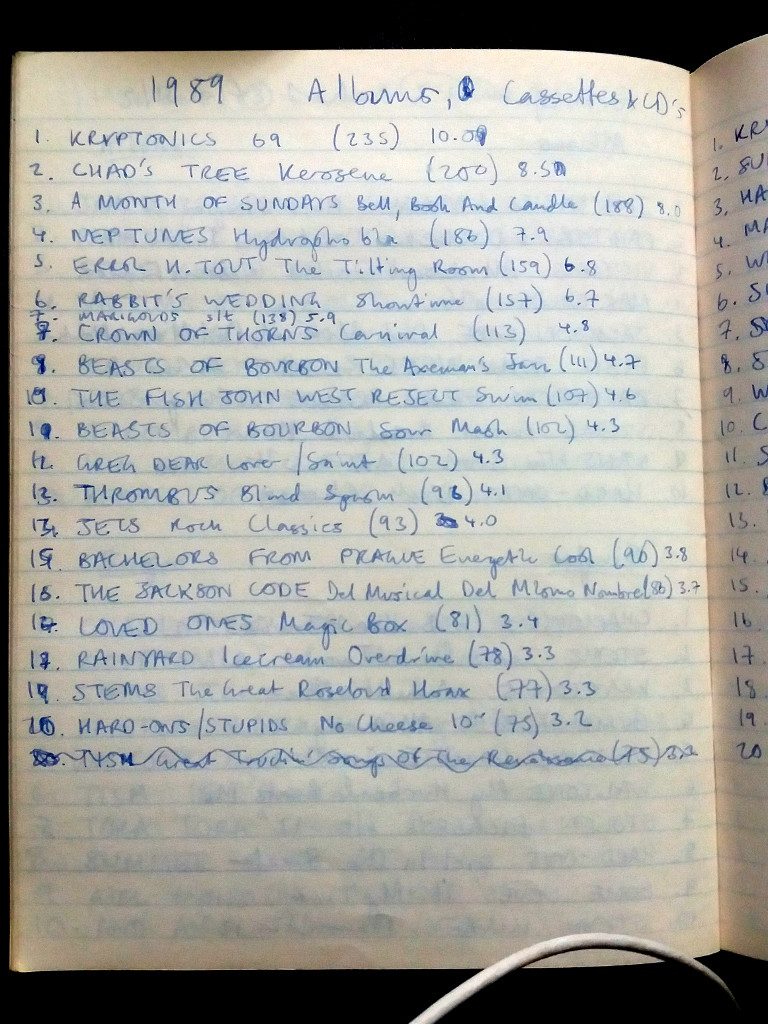 1989 Albums, Cassettes & CD's
1. KRYPTONICS 69 (235) 10.0
2. CHAD'S TREE Kerosene (200) 8.5
3. A MONTH OF SUNDAYS Bell, Book And Candle (188) 8.0
4. NEPTUNES Hydrophobia (186) 7.9
5. ERROL H. TOUT The Tilting Room (159) 6.8
6. RABBIT'S WEDDING Showtime (157) 6.7
7. MARIGOLDS s/t (138) 5.9
CROWN OF THORNS Carnival (113) 4.8
9. BEASTS OF BOURBON The Axeman's Jazz (111) 4.7
10. THE FISH JOHN WEST REJECT Swim (107) 4.6
BEASTS OF BOURBON Sour Mash (102) 4.3
12. GREG DEAR Lover/Saint (102) 4.3
13. THROMBUS Blind Spasm (96) 4.1
JETS Rock Classics (93) 4.0
15. BACHELORS FROM PRAGUE Energetic Cool (90) 3.8
16. THE JACKSON CODE Del Musical Del Mismo Nombre (86) 3.7
LOVED ONES Magic Box (81) 3.4
RAINYARD Icecream Overdrive (78) 3.3
19. STEMS The Great Rosebud Hoax (77) 3.3
20. HARD-ONS/STUPIDS No Cheese 10" (75) 3.2
Great Truckin' Songs Of The Renaissance (75)
1. KR
2. SU
3. HA
4. MA
5. W
6. S
7. S
8. S
9. W
10. C
11. S
12.
13.
14.
15.
16
17
18
19.
20